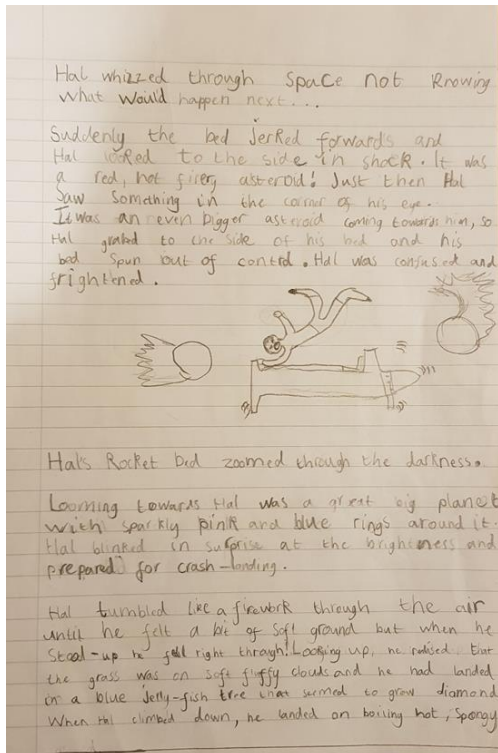 Hal whizzed through space not knowing
what would happen next...
Suddenly the bed jerked forwards and
Hal looked to the side in shock. It was
a red, hot firery asteroid! Just then Hal
Saw something in the corner of his eye.
It was an even bigger asteroid coming towards him, so
Hal to the side of his bed and his
bed spun out of control. Hal was confused and
frightened.
Hal's Rocket bed zoomed through the darkness.
Looming towards Hal was a great big planet
with sparkly pink and blue rings around it.
Hal blinked in surprise at the brightness and
prepared for crash-landing.
Hal tumbled like a firework through the air
until he felt a bit of soft ground but when he
Stood-up he fell right through! Looking up, he realised that
the grass was on soft fluffy clouds and he had landed
in a blue Jelly-fish tree that seemed to grow diamond
When Hal climbed down, he landed on boiling hot, Spongy